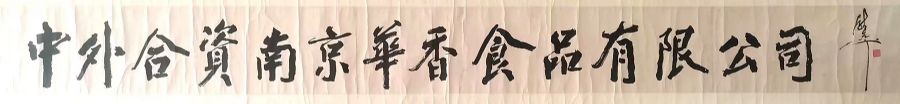 中外合資南京華香食品有限公司